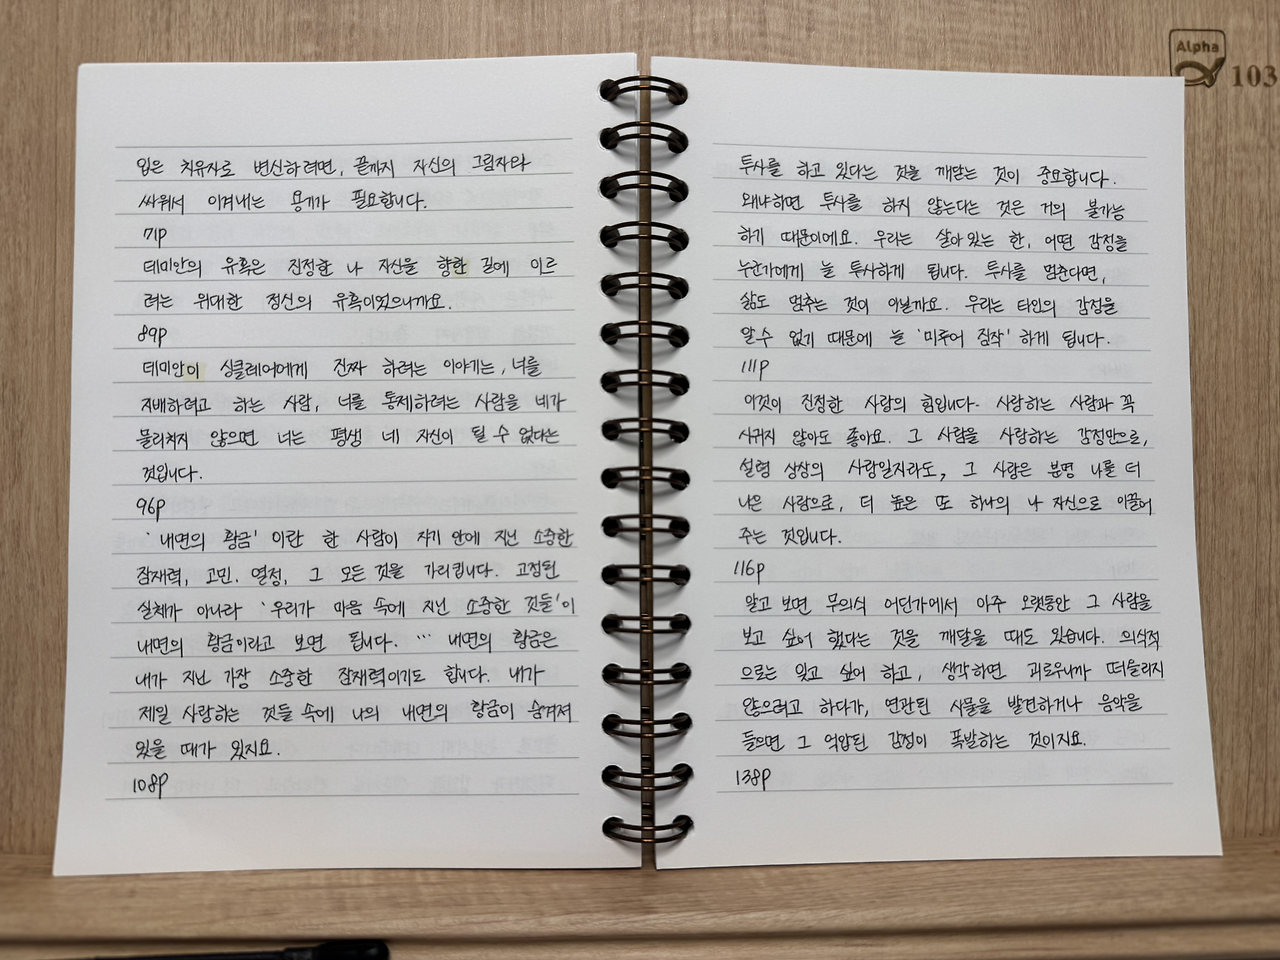 입은 치유자로 변신하려면, 끝까지 자신의 그림자와
싸워서 이겨내는 용기가 필요합니다.
71p
데미안의 유혹은 진정한 나 자신을 향한 길에 이르
려는 위대한 정신의 유혹이었으니까요.
89p
데미안이 싱클레어에게 진짜 하려는 이야기는, 너를
지배하려고 하는 사람, 너를 통제하려는 사람을 네가
물리치지 않으면 너는 평생 네 자신이 될 수 없다는
것입니다.
96p
'내면의 황금' 이란 한 사람이 자기 안에 지닌 소중한
잠재력, 고민, 열정, 그 모든 것을 가리킵니다. 고정된
실체가 아니라 '우리가 마음 속에 지닌 소중한 것들'이
내면의 황금이라고 보면 됩니다. … 내면의 황금은
내가 지닌 가장 소중한 잠재력이기도 합니다. 내가
제일 사랑하는 것들 속에 나의 내면의 황금이 숨겨져
있을 때가 있지요.
108p
투사를 하고 있다는 것을 깨닫는 것이 중요합니다.
왜냐하면 투사를 하지 않는다는 것은 거의 불가능
하기 때문이에요. 우리는 살아있는 한, 어떤 감정을
누군가에게 늘 투사하게 됩니다. 투사를 멈춘다면,
삶도 멈추는 것이 아닐까요. 우리는 타인의 감정을
알 수 없기 때문에 늘 '미루어 짐작' 하게 됩니다.
111p
이것이 진정한 사랑의 힘입니다. 사랑하는 사람과 꼭
사귀지 않아도 좋아요. 그 사람을 사랑하는 감정만으로,
설령 상상의 사랑일지라도, 그 사랑은 분명 나를 더
나은 사람으로, 더 높은 또 하나의 나 자신으로 이끌어
주는 것입니다.
116p
알고 보면 무의식 어딘가에서 아주 오랫동안 그 사람을
보고 싶어 했다는 것을 깨달을 때도 있습니다. 의식적
으로는 잊고 싶어 하고, 생각하면 괴로우니까 떠올리지
않으려고 하다가, 연관된 사물을 발견하거나 음악을
들으면 그 억압된 감정이 폭발하는 것이지요.
138p
Alpha
103